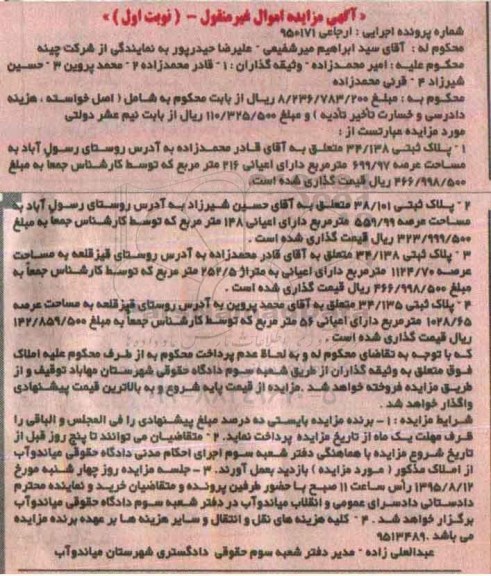 « آگهی مزایده اموال غیرمنقول - ( نوبت اول ) »
شماره پرونده اجرایی : ارجاعی ۹۵۰۱۷۱
محکوم له : آقای سید ابراهیم میرشفیعی - علیرضا حیدرپور به نمایندگی از شرکت چینه
محکوم علیه : امیر محمدزاده - وثیقه گذاران : ۱ - قادر محمدزاده ۲ - محمد پروین ۳ - حسین
شیرزاد ۴ - قرنی محمدزاده
محکوم به : مبلغ ۸/۲۳۶/۷۸۳/۲۰۰ ریال از بابت محکوم به شامل ( اصل خواسته ، هزینه
دادرسی و خسارت تأخیر تأدیه ) و مبلغ ۱۱۰/۳۲۵/۵۰۰ ریال از بابت نیم عشر دولتی
مورد مزایده عبارتست از :
۱ - پلاک ثبتی ۳۴/۱۳۸ متعلق به آقای قادر محمدزاده به آدرس روستای رسول آباد به
مساحت عرصه ۶۹۹/۹۷ مترمربع دارای اعیانی ۲۱۶ متر مربع که توسط کارشناس جمعاً به مبلغ
۴۶۶/۹۹۸/۵۰۰ ریال قیمت گذاری شده است.
۲ - پلاک ثبتی ۳۸/۱۰۱ متعلق به آقای حسین شیرزاد به آدرس روستای رسول آباد به
مساحت عرصه ۵۵۹/۹۹ مترمربع دارای اعیانی ۱۴۸ متر مربع که توسط کارشناس جمعاً به مبلغ
۳۲۳/۹۹۹/۵۰۰ ریال قیمت گذاری شده است .
۳ - پلاک ثبتی ۳۴/۱۳۸ متعلق به آقای قادر محمدزاده به آدرس روستای قیزقلعه به مساحت
عرصه ۱۱۲۴/۷۰ مترمربع دارای اعیانی به متراژ ۲۵۲/۵ متر مربع که توسط کارشناس جمعاً به
مبلغ ۴۶۶/۹۹۸/۵۰۰ ریال قیمت گذاری شده است .
۴ - پلاک ثبتی ۳۴/۱۳۵ متعلق به آقای محمد پروین به آدرس روستای قیزقلعه به مساحت عرصه
۱۰۲۸/۶۵ مترمربع دارای اعیانی ۵۶ متر مربع که توسط کارشناس جمعاً به مبلغ ۱۴۲/۸۵۹/۵۰۰
ریال قیمت گذاری شده است .
که با توجه به تقاضای محکوم له و به لحاظ عدم پرداخت محکوم به از طرف محکوم علیه املاک
فوق متعلق به وثیقه گذاران از طریق شعبه سوم دادگاه حقوقی شهرستان مهاباد توقیف و از
طریق مزایده فروخته خواهد شد . مزایده از قیمت پایه شروع و به بالاترین قیمت پیشنهادی
واگذار خواهد شد .
شرایط مزایده : ۱ - برنده مزایده بایستی ده درصد مبلغ پیشنهادی را فی المجلس و الباقی را
ظرف مهلت یک ماه از تاریخ مزایده پرداخت نماید. ۲ - متقاضیان می توانند تا پنج روز قبل از
تاریخ شروع مزایده با هماهنگی دفتر شعبه سوم اجرای احکام مدنی دادگاه حقوقی میاندوآب
از املاک مذکور ( مورد مزایده ) بازدید بعمل آورند. ۳ - جلسه مزایده روز چهار شنبه مورخ
۱۳۹۵/۸/۱۲ رأس ساعت ۱۱ صبح با حضور طرفین پرونده و متقاضیان خرید و نماینده محترم
دادستانی دادسرای عمومی و انقلاب میاندوآب در دفتر شعبه سوم دادگاه حقوقی میاندوآب
برگزار خواهد شد . ۴ - کلیه هزینه های نقل و انتقال و سایر هزینه ها بر عهده برنده مزایده
می باشد . ۹۵۱۳۴۸۹
عبدالعلی زاده - مدیر دفتر شعبه سوم حقوقی دادگستری شهرستان میاندوآب